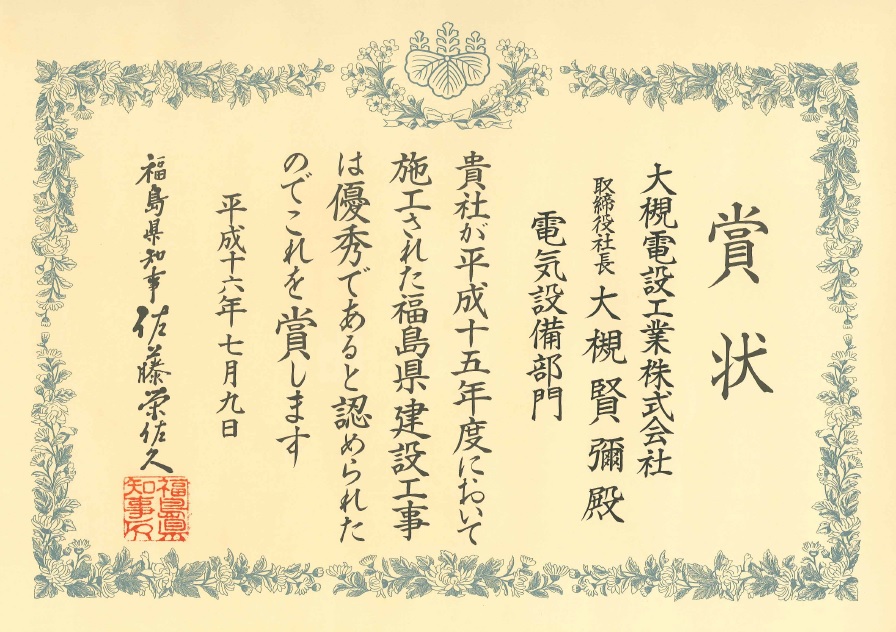 賞状
大槻電設工業株式会社
取締役社長 大槻賢彌殿
電気設備部門
貴社が平成十五年度において
施工された福島県建設工事
は優秀であると認められた
のでこれを賞します
平成十六年七月九日
福島県知事 佐藤栄佐久
福島県
知事印